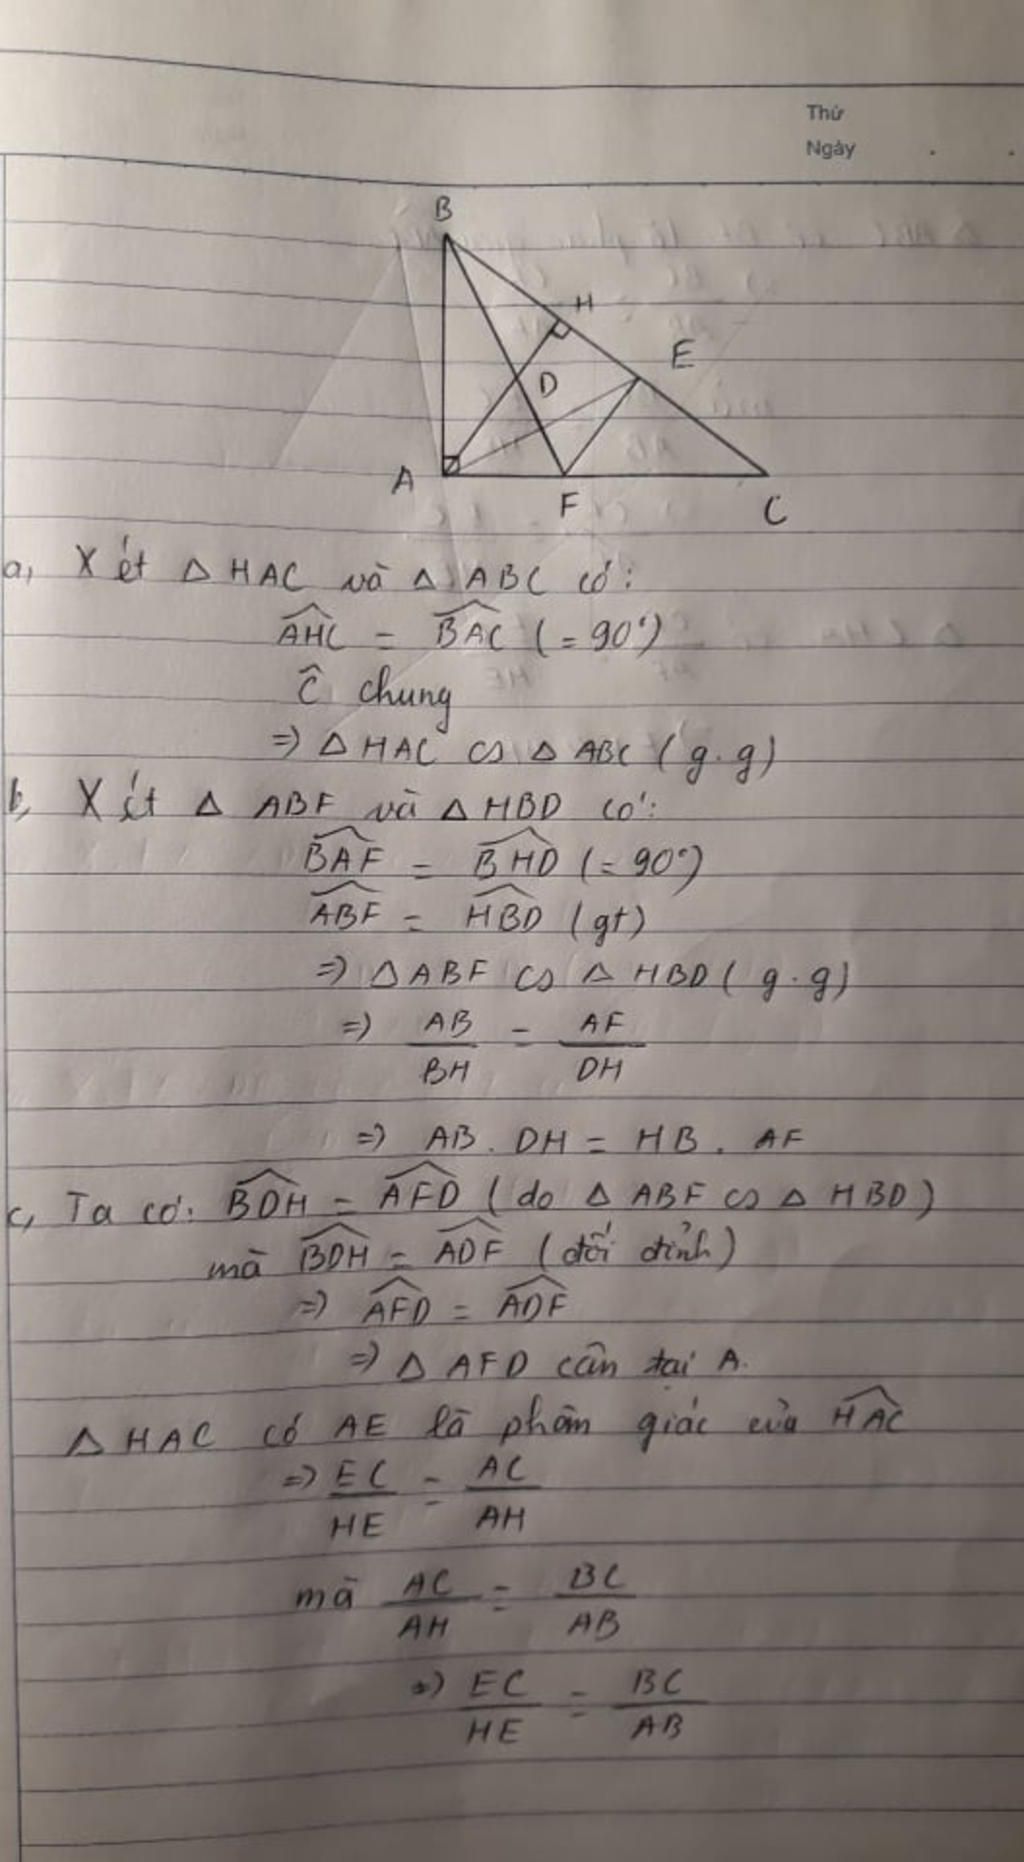 Thứ
Ngày
B
H
E
D
A
F
C
a, Xét △ HAC và △ ABC có:
$\widehat{AHC}$ = $\widehat{BAC}$ (= 90°)
$\widehat{C}$ chung
=> △ HAC ∽ △ ABC (g.g)
b, Xét △ ABF và △ HBD có:
$\widehat{BAF}$ = $\widehat{BHD}$ (= 90°)
$\widehat{ABF}$ = $\widehat{HBD}$ (gt)
=> △ ABF ∽ △ HBD (g.g)
=> $\frac{AB}{BH}$ = $\frac{AF}{DH}$
=> AB . DH = HB . AF
c, Ta có: $\widehat{BDH}$ = $\widehat{AFD}$ (do △ ABF ∽ △ HBD)
mà $\widehat{BDH}$ = $\widehat{ADF}$ (đối đỉnh)
=> $\widehat{AFD}$ = $\widehat{ADF}$
=> △ AFD cân tại A.
△ HAC có AE là phân giác của $\widehat{HAC}$
=> $\frac{EC}{HE}$ = $\frac{AC}{AH}$
mà $\frac{AC}{AH}$ = $\frac{BC}{AB}$
=> $\frac{EC}{HE}$ = $\frac{BC}{AB}$